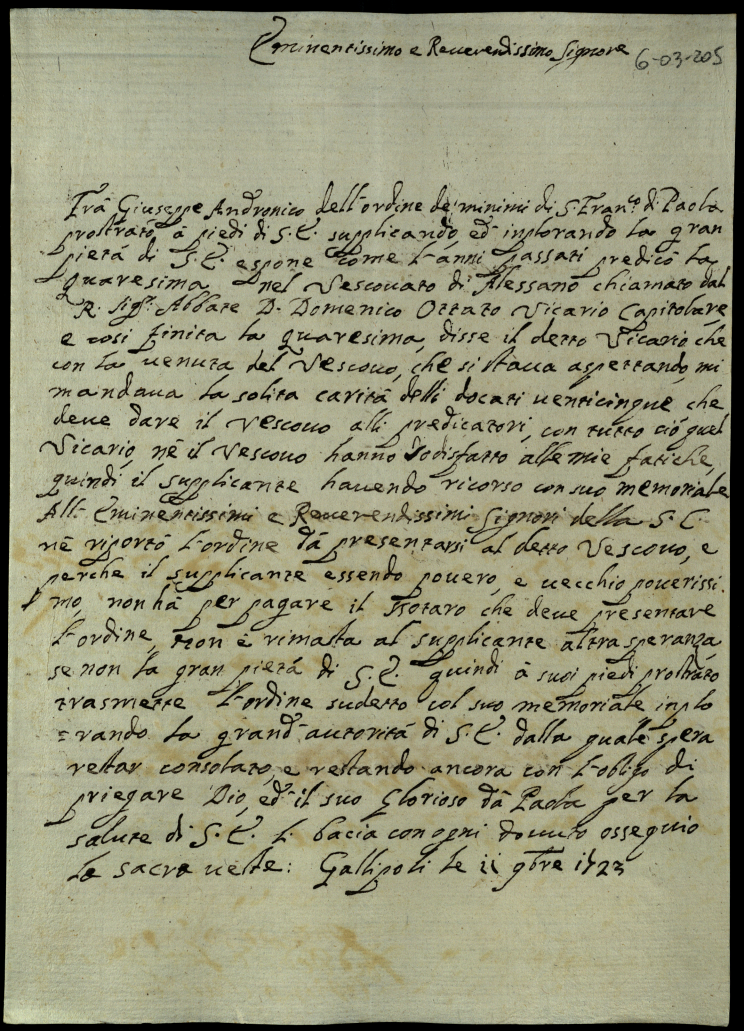 Eminentissimo e Reverendissimo Signore
6-03-205
Frà Giuseppe Andronico dell'ordine de minimi di S. Fran.co di Paola
prostrato à piedi di S. E. supplicando, ed'inplorando la gran
pietà di S. E. espone come l'anni passati predicò la
quaresima nel Vescovato di Alessano chiamato dal
R. Sig.r Abbate D. Domenico Ottato Vicario Capitolare,
e così finita la quaresima, disse il detto Vicario che
con la venuta del Vescovo, che si stava aspettando, mi
mandava la solita carità delli docati venticinque che
deve dare il vescovo alli predicatori, con tutto ciò quel
Vicario, nè il Vescovo hanno sodisfatto alle mie fatiche,
quindi il supplicante havendo ricorso con suo memoriale
All' Eminentissimi e Reverendissimi Signori della S. C.
nè riportò l'ordine dà presentarsi al detto Vescovo, e
perche il supplicante essendo povero, e vecchio poverissi
mo, non hà per pagare il Notaro che deve presentare
l'ordine, non è rimasta al supplicante altra speranza
se non la gran pietà di S. E. quindi à suoi piedi prostrato
trasmette l'ordine sudetto col suo memoriale inplo
=rando la grand'autorità di S. E. dalla quale spera
restar consolato, e restando ancora con l'obligo di
priegare Dio, ed'il suo Glorioso dà Paola per la
salute di S. E. L. bacia con ogni dovuto ossequio
la sacra veste: Gallipoli le 11 9bre 1723